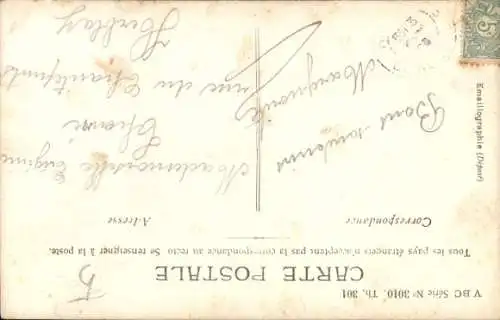 V BC Série Nº 3010. Th, 301
CARTE POSTALE
Tous les pays étrangers n'acceptent pas la correspondance au recto Se renseigner à la poste.
Correspondance
Adresse
5
Emaillographie (Déposé)
Bons souvenirs
Marguerite
Mademoiselle Eugénie
rue du
Herblay
5c